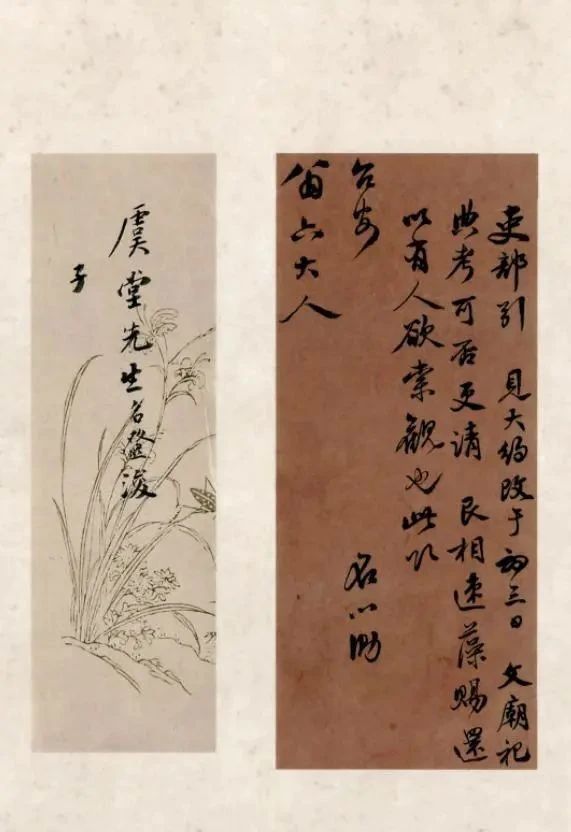 吏部引 見大約改于初三日 文廟祀
典考可否更請 艮相速藻賜還
以有人欲索觀也此叩
台安 名心泐
翁六大人
虞堂先生名